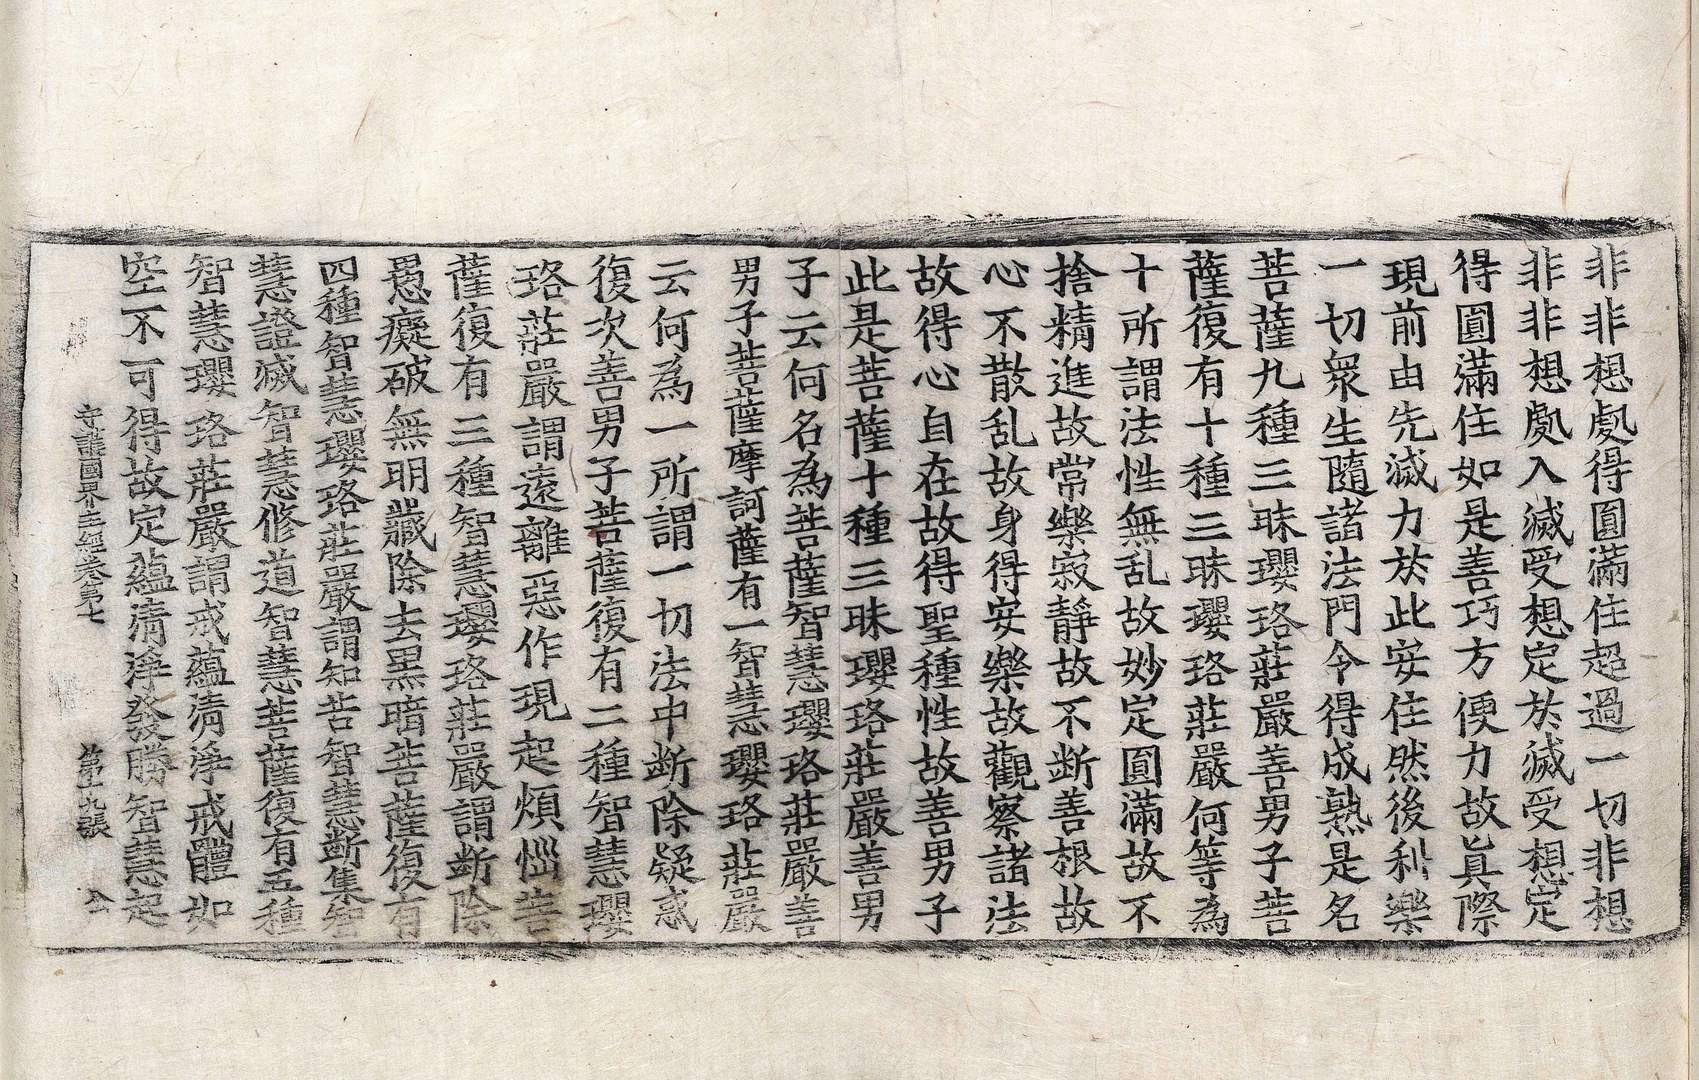 非非想處得圓滿住超過一切非想
非非想處入滅受想定於滅受想定
得圓滿住如是善巧方便力故真際
現前由先滅力於此安住然後利樂
一切衆生隨諸法門令得成熟是名
菩薩九種三昧瓔珞莊嚴善男子菩
薩復有十種三昧瓔珞莊嚴何等為
十所謂法性無乱故妙定圓滿故不
捨精進故常樂寂靜故不断善根故
心不散乱故身得安樂故觀察諸法
故得心自在故得聖種性故善男子
此是菩薩十種三昧瓔珞莊嚴善男
子云何名為菩薩智慧瓔珞莊嚴善
男子菩薩摩訶薩有一智慧瓔珞莊嚴
云何為一所謂一切法中断除疑惑
復次善男子菩薩復有二種智慧瓔
珞莊嚴謂遠離惡作現起煩惱菩
薩復有三種智慧瓔珞莊嚴謂断除
愚癡破無明藏除去黑暗菩薩復有
四種智慧瓔珞莊嚴謂知苦智慧斷集智
慧證滅智慧修道智慧菩薩復有五種
智慧瓔珞莊嚴謂戒蘊清淨戒體如
空不可得故定蘊清淨發勝智慧起
守護國界主經卷第七 第十九張